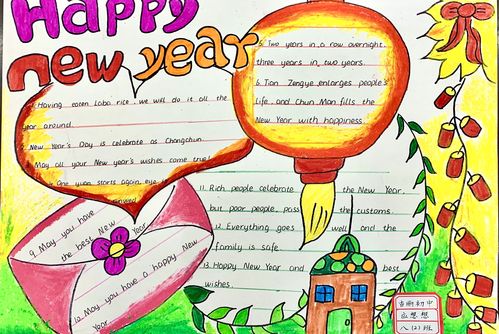 Happy
new year
1. Having eaten Laba rice, we will do it all the
year around.
2. New Year's Day is celebrate as Changchun.
3. May all your New year's wishes come true!
4. One yuan starts again, eye is
5. Two years in a row overnight,
three years in two years.
6. Tian Zengye enlarges people's
life, and Chun Man fills the
New Year with happiness.
9. May you have
the best New Year
12. May you have a happy New
Year
11. Rich people celebrate the New Year,
but poor people pass the customs.
12. Everything goes well and the
family is safe.
13. Happy New Year and best
wishes.
初中
想想
八(2)班